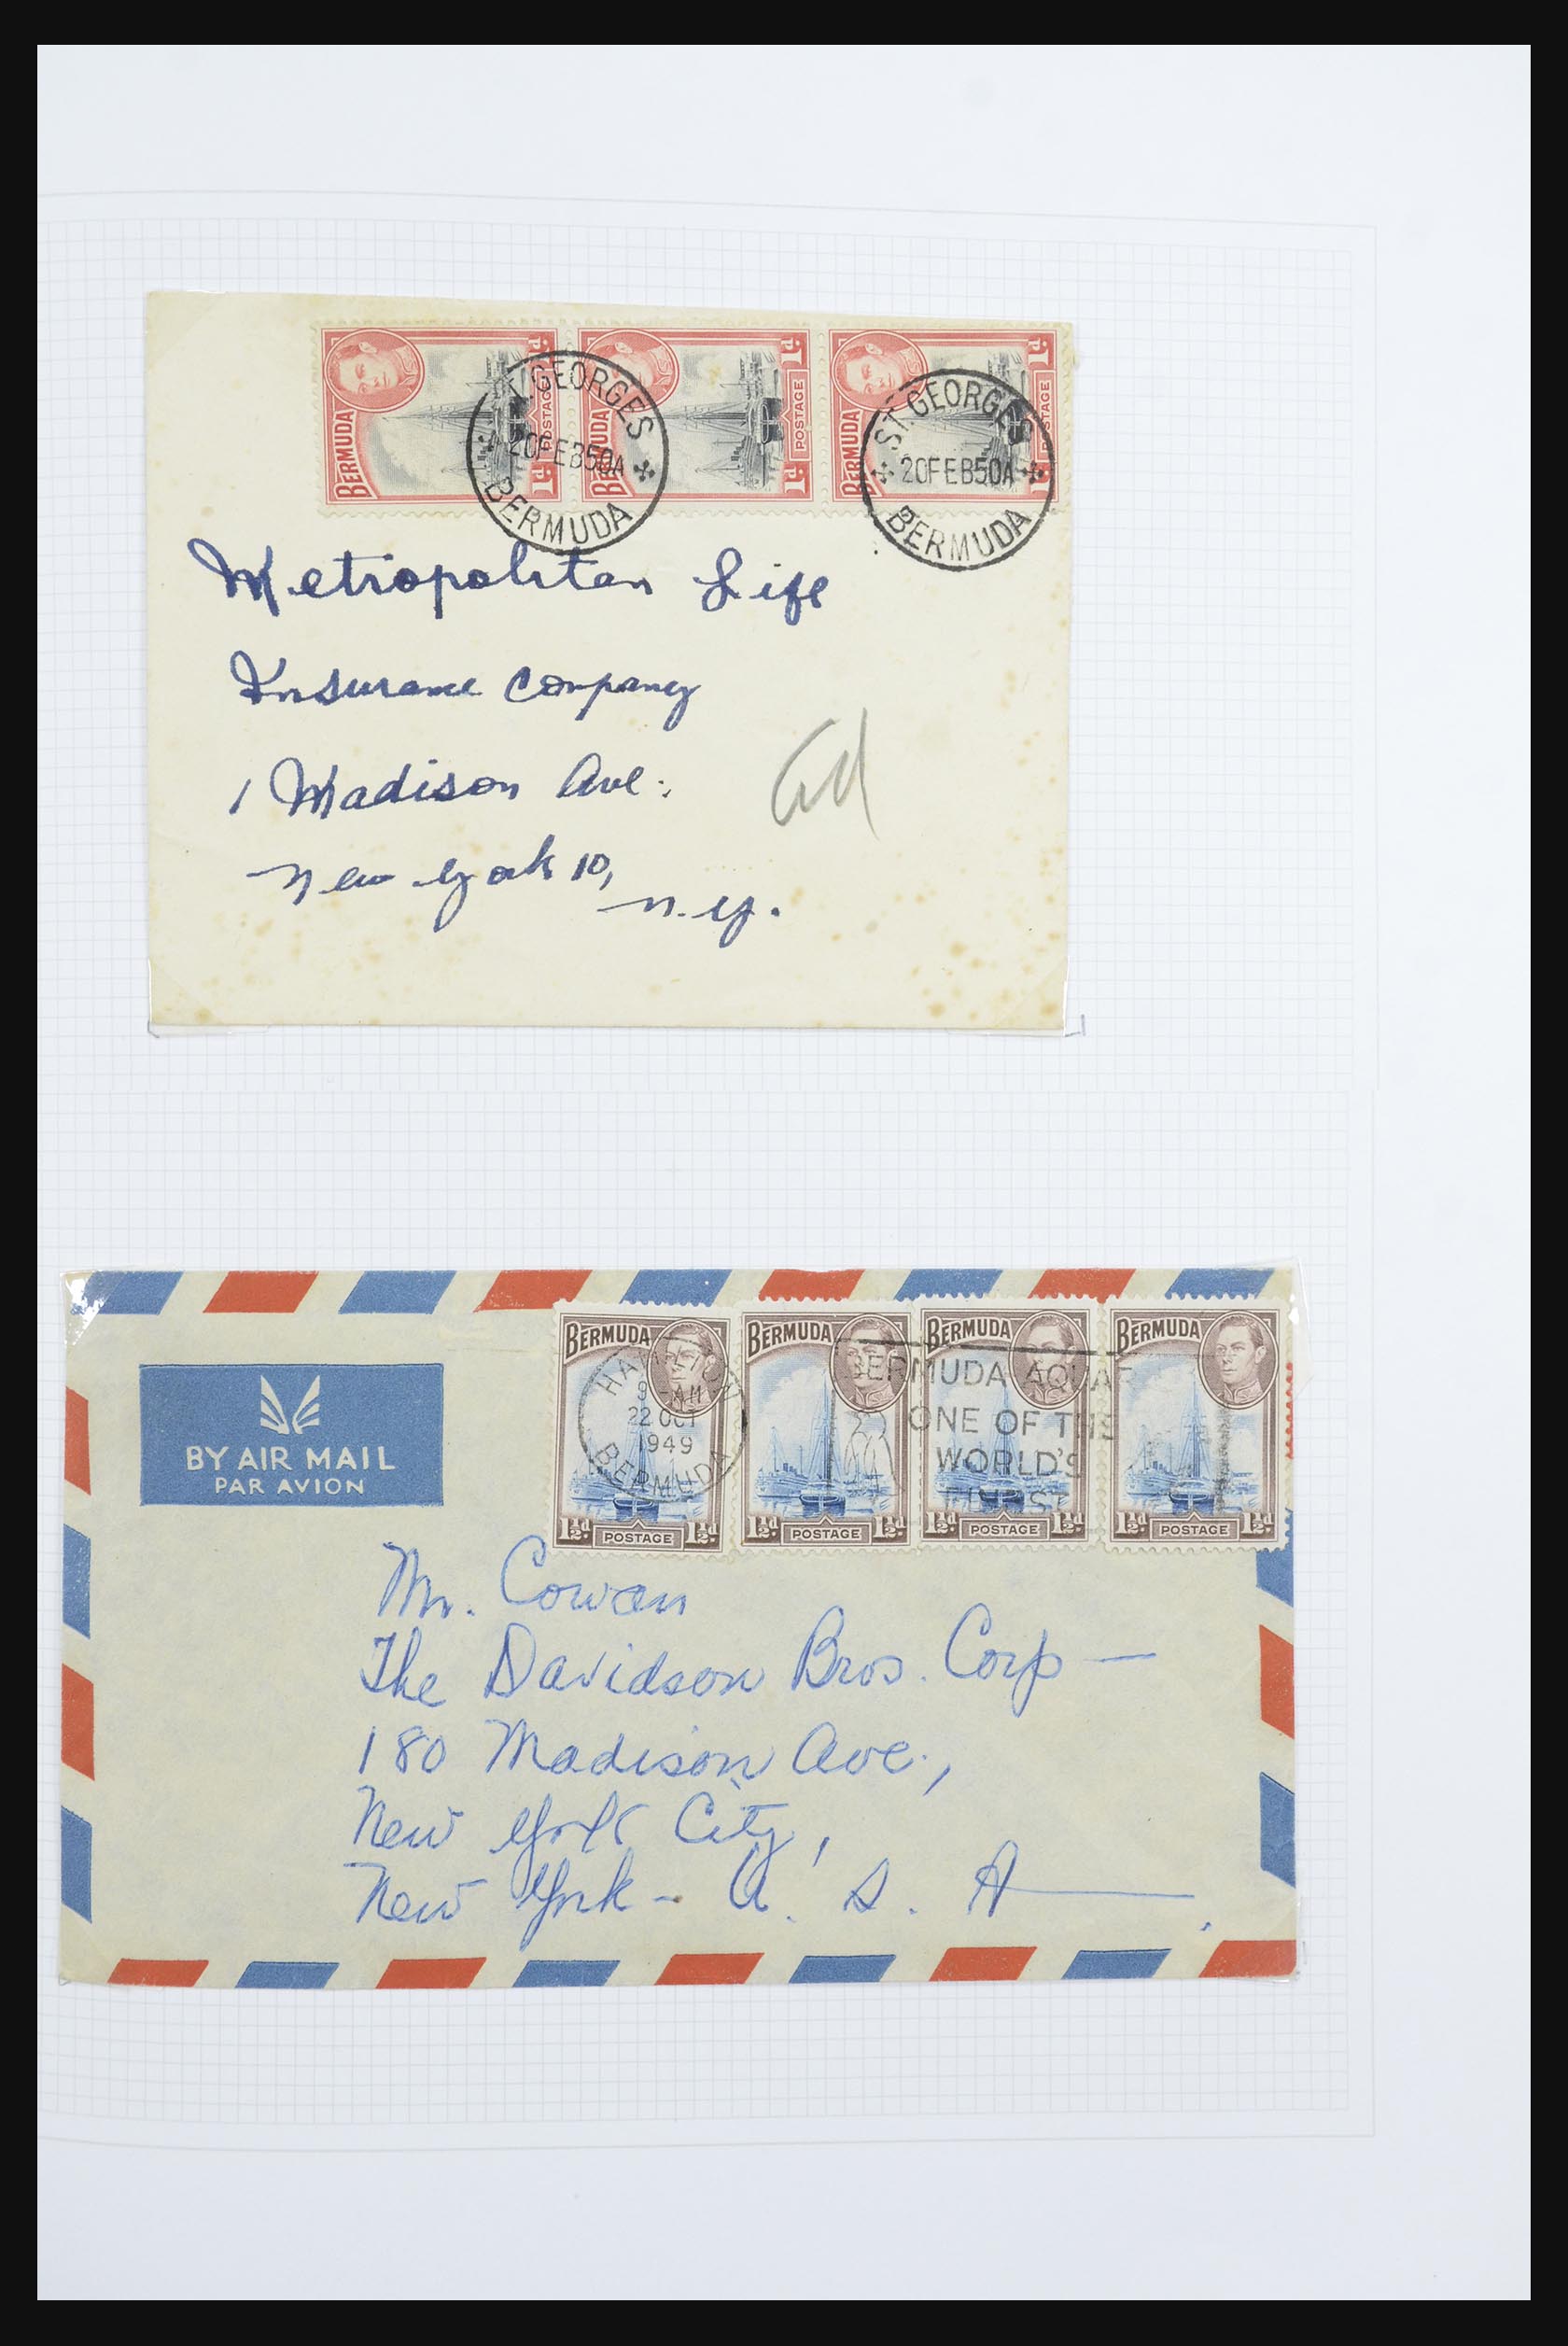 BERMUDA 1d. POSTAGE 1d.
BERMUDA 1d. POSTAGE 1d.
BERMUDA 1d. POSTAGE
ST. GEORGES
20FEB50A
BERMUDA
ST. GEORGES
20FEB50A
BERMUDA
Metropolitan Life
Insurance Company
1 Madison Ave.
New York 10,
N.Y.
BY AIR MAIL
PAR AVION
BERMUDA
1½d POSTAGE 1½d
BERMUDA
1½d POSTAGE 1½d
BERMUDA
1½d POSTAGE 1½d
BERMUDA
1½d POSTAGE 1½d
HAMILTON
9 - AM
22 OCT
1949
BERMUDA
BERMUDA AQUAR
ONE OF THE
WORLD'S
FINEST
Mr. Cowan
The Davidson Bros. Corp —
180 Madison Ave.,
New York City,
New York - U. S. A.